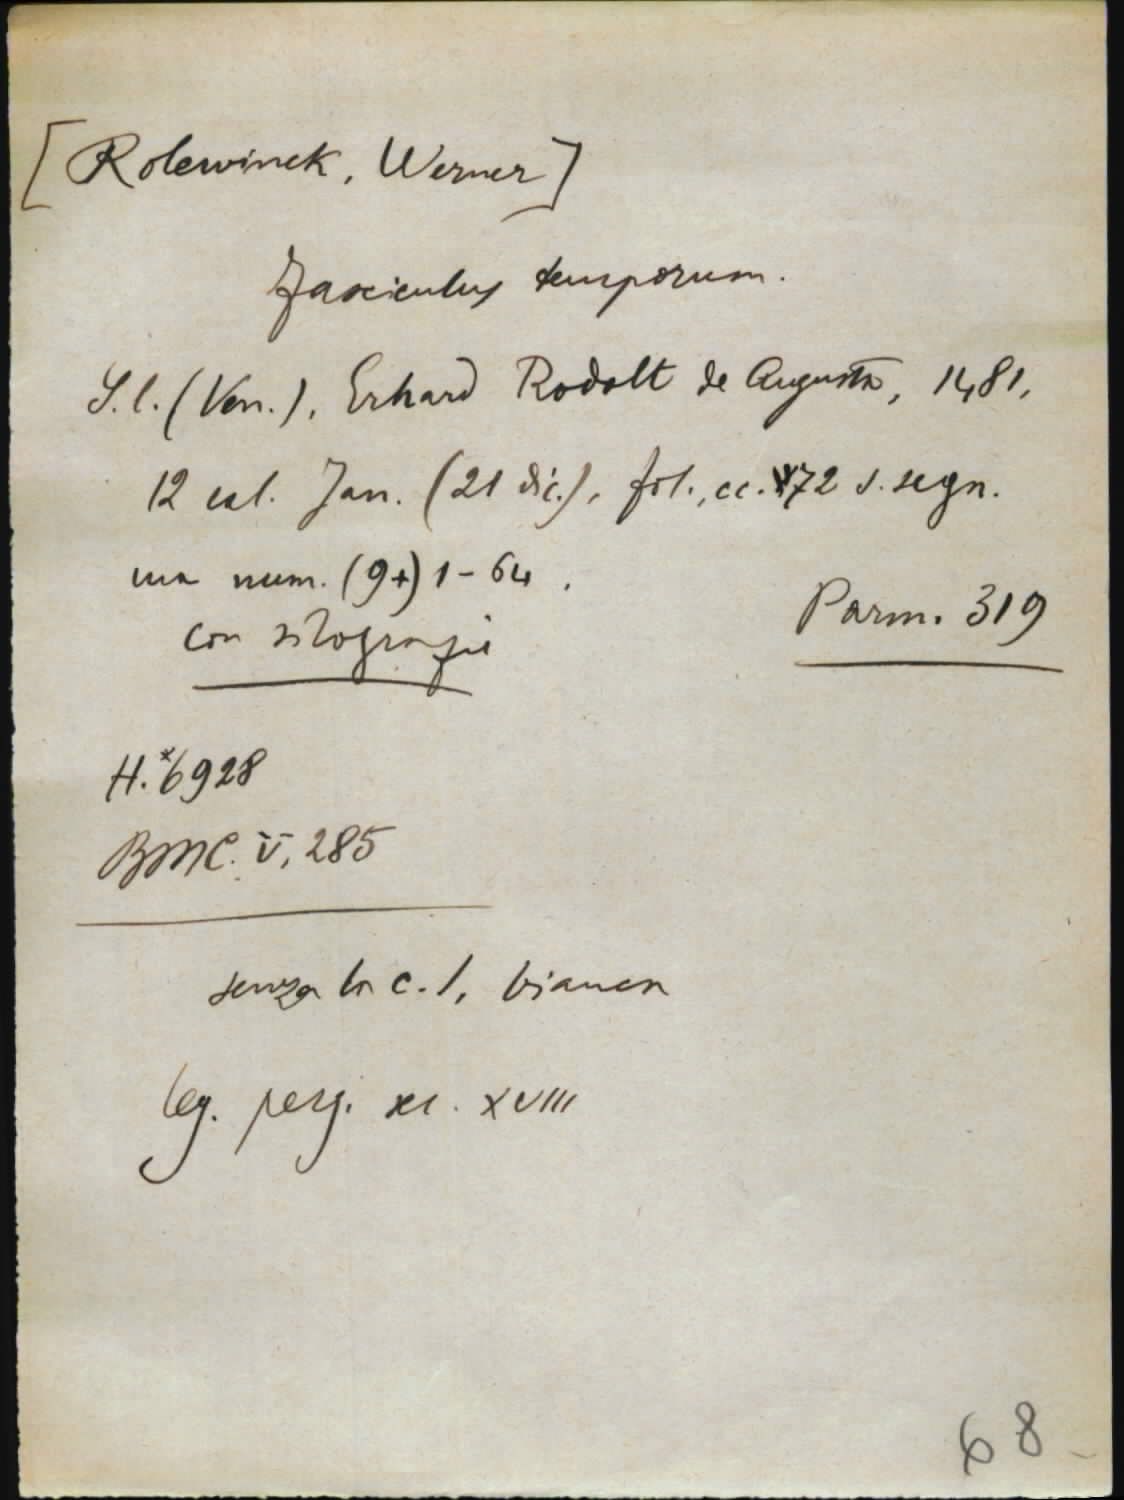 [Rolewinck, Werner]
Fasciculus temporum.
S.l. (Ven.), Erhard Rodolt de Augusta, 1481,
12 cal. Jan. (21 dic.), fol., cc. 72 s. segn.
ma num. (9+) 1-64.
con silografie
Parm. 319
H.*6928
BMC. V, 285
senza la c. 1, bianca
leg. perg. sec. XVIII
68